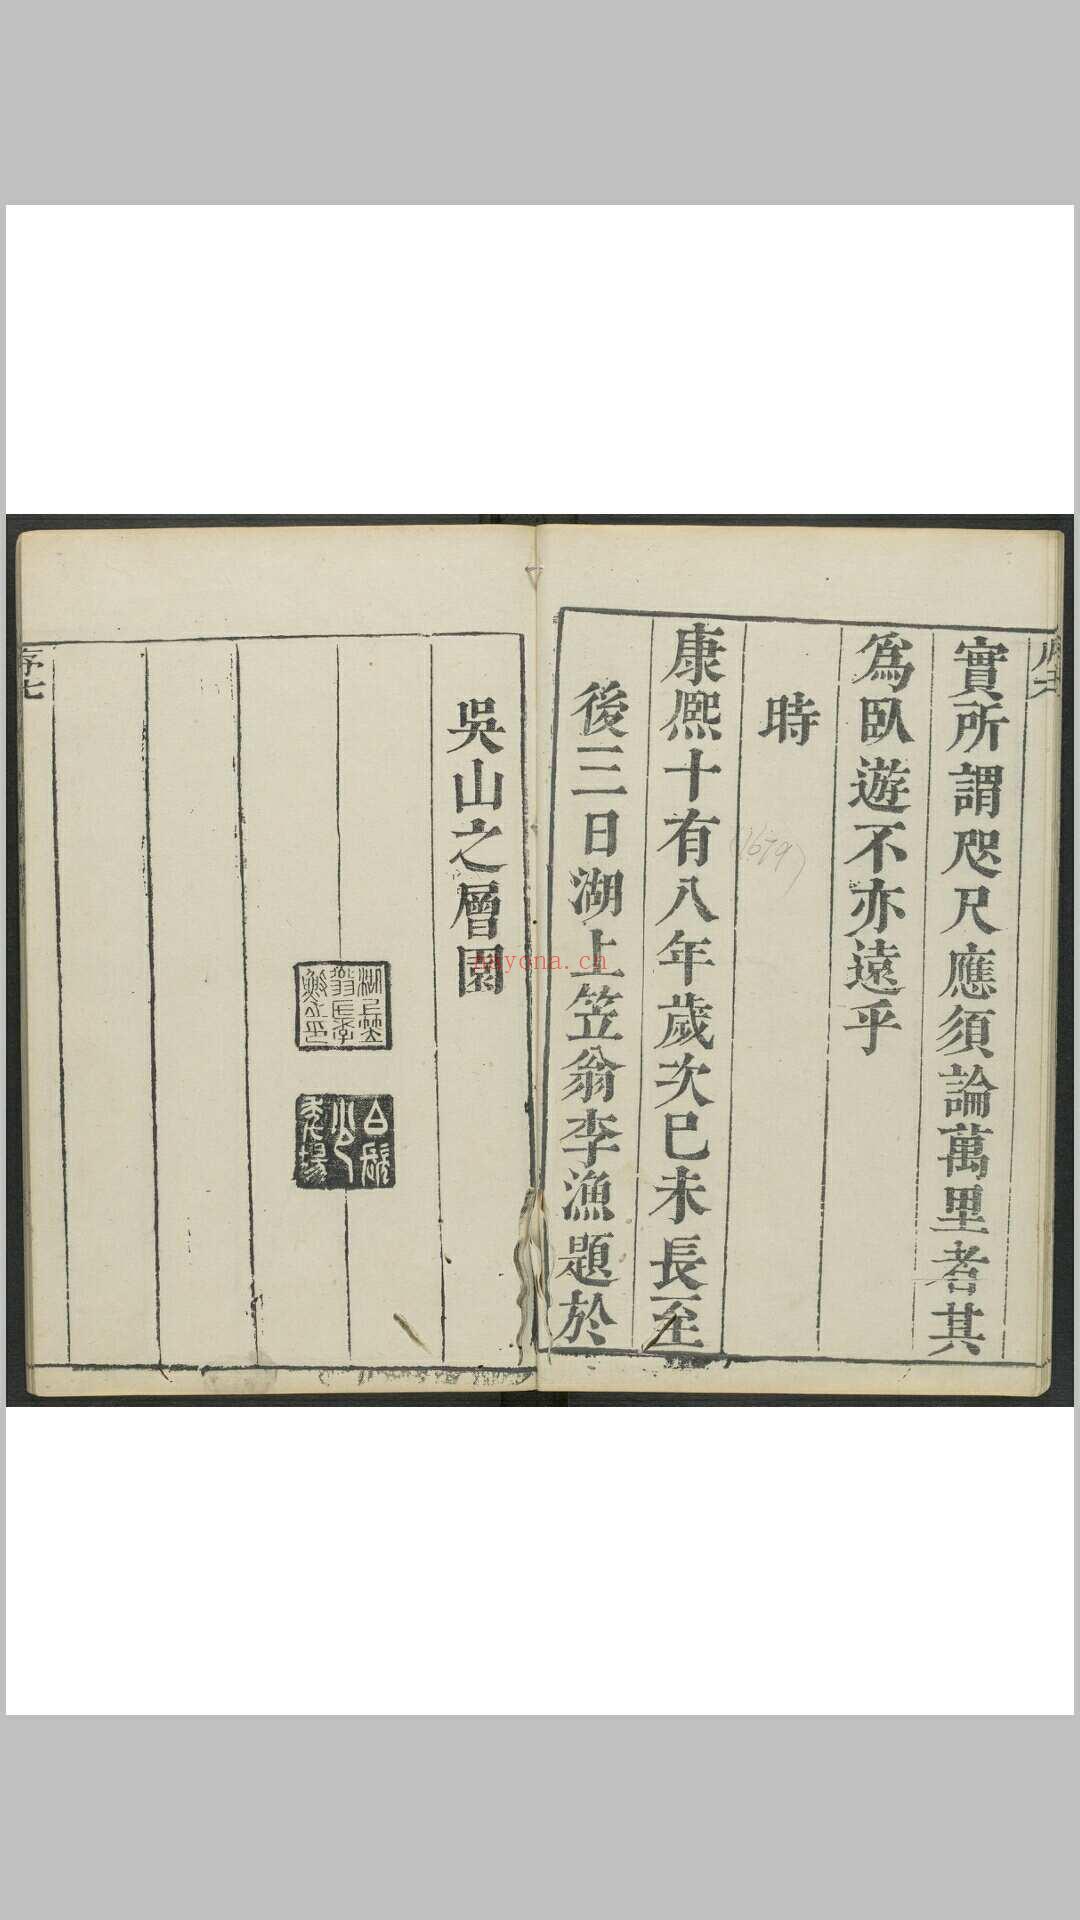 序六
實所謂咫尺應須論萬里者其
爲臥遊不亦遠乎
時
(1679)
康熙十有八年歲次巳未長至
後三日湖上笠翁李漁題於
吳山之層園
湖上笠
翁氏李
漁之印
白髮
少
年場
序七
nayona.cn